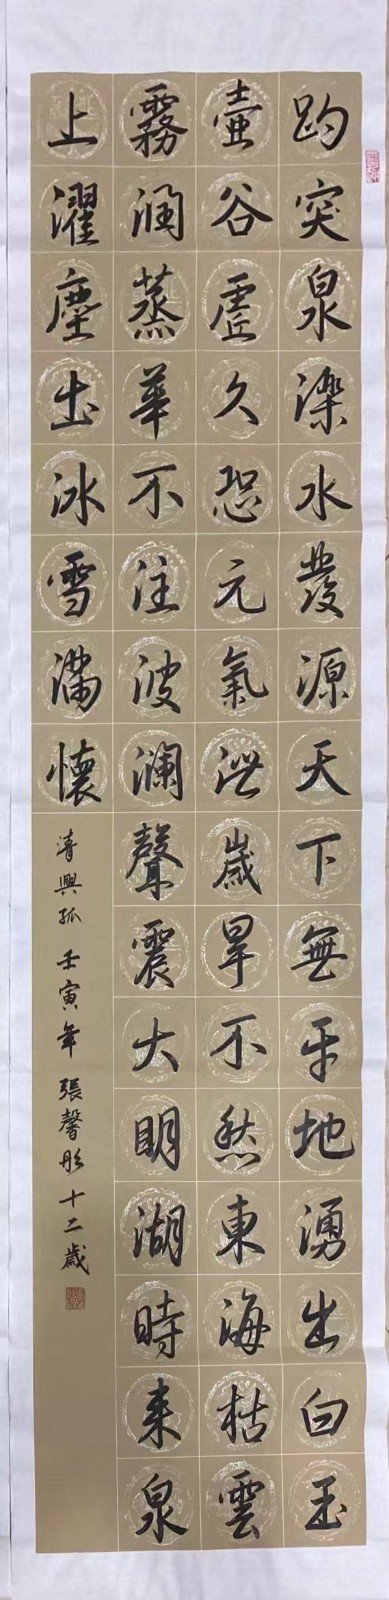 趵突泉濼水發源天下無平地湧出白玉
壺谷虛久恐元氣泄歲旱不愁東海枯雲
霧潤蒸華不注波瀾聲震大明湖時来泉
上濯塵土冰雪滿懷
清興孤 壬寅年 張馨彤十二歲